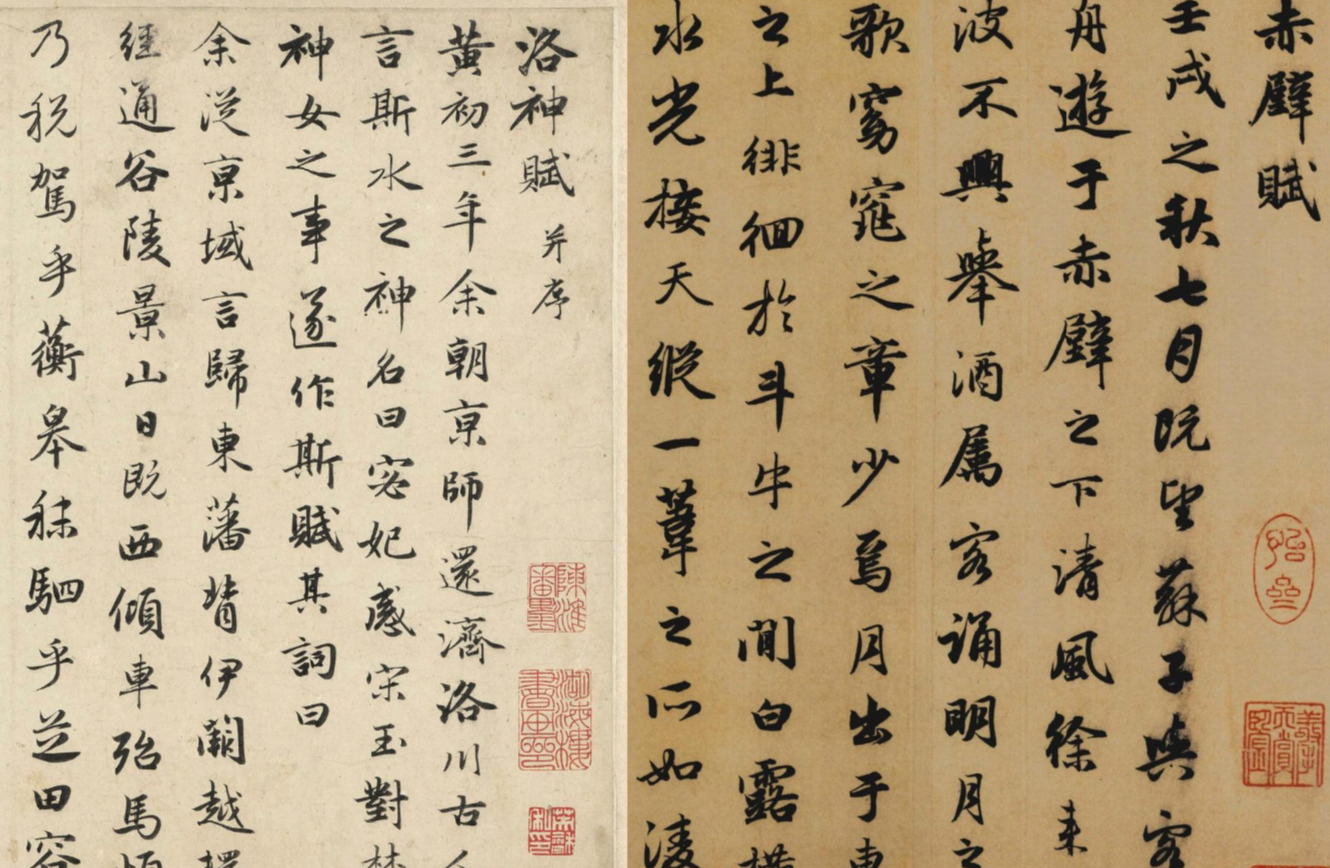 洛神賦并序
黃初三年余朝京師還濟洛川古
言斯水之神名曰宓妃感宋玉對
神女之事遂作斯賦其詞曰
余從京域言歸東藩背伊闕越
經通谷陵景山日既西傾車殆馬
乃稅駕乎蘅皋秣駟乎芝田容
赤壁賦
壬戌之秋七月既望蘇子與客
舟遊于赤壁之下清風徐来
波不興舉酒属客誦明月之
歌窈窕之章少焉月出于東
之上徘徊於斗牛之間白露橫
水光接天縱一葦之所如凌